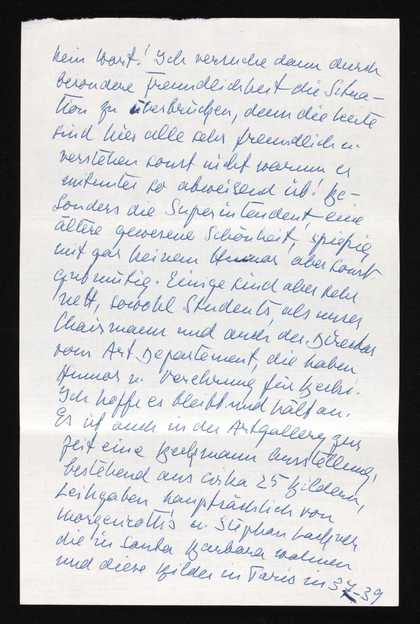 kein Wort! Ich versuche dann durch
besondere Freundlichkeit die Situa-
tion zu überbrücken, denn die Leute
sind hier alle sehr freundlich u.
verstehen sonst nicht warum er
mitunter so abweisend ist! Be-
sonders die Superintendent eine
ältere gewesene Schönheit, spießig
mit gar keinem Humor aber sonst
gutmütig. Einige sind aber sehr
nett, sowohl Students, als unser
Chairmann und auch der Director
vom Art Departement, die haben
Humor u. Verehrung für
Ich hoffe es bleibt und hält an.
Es ist auch in der Artgallery zur
Zeit eine Beckmann Ausstellung,
bestehend aus cirka 25 Bildern,
Leihgaben hauptsächlich von
Morgenroth's u. Stephan Lackner
die in Santa Barbara wohnen
und diese Bilder in Paris in 37-39